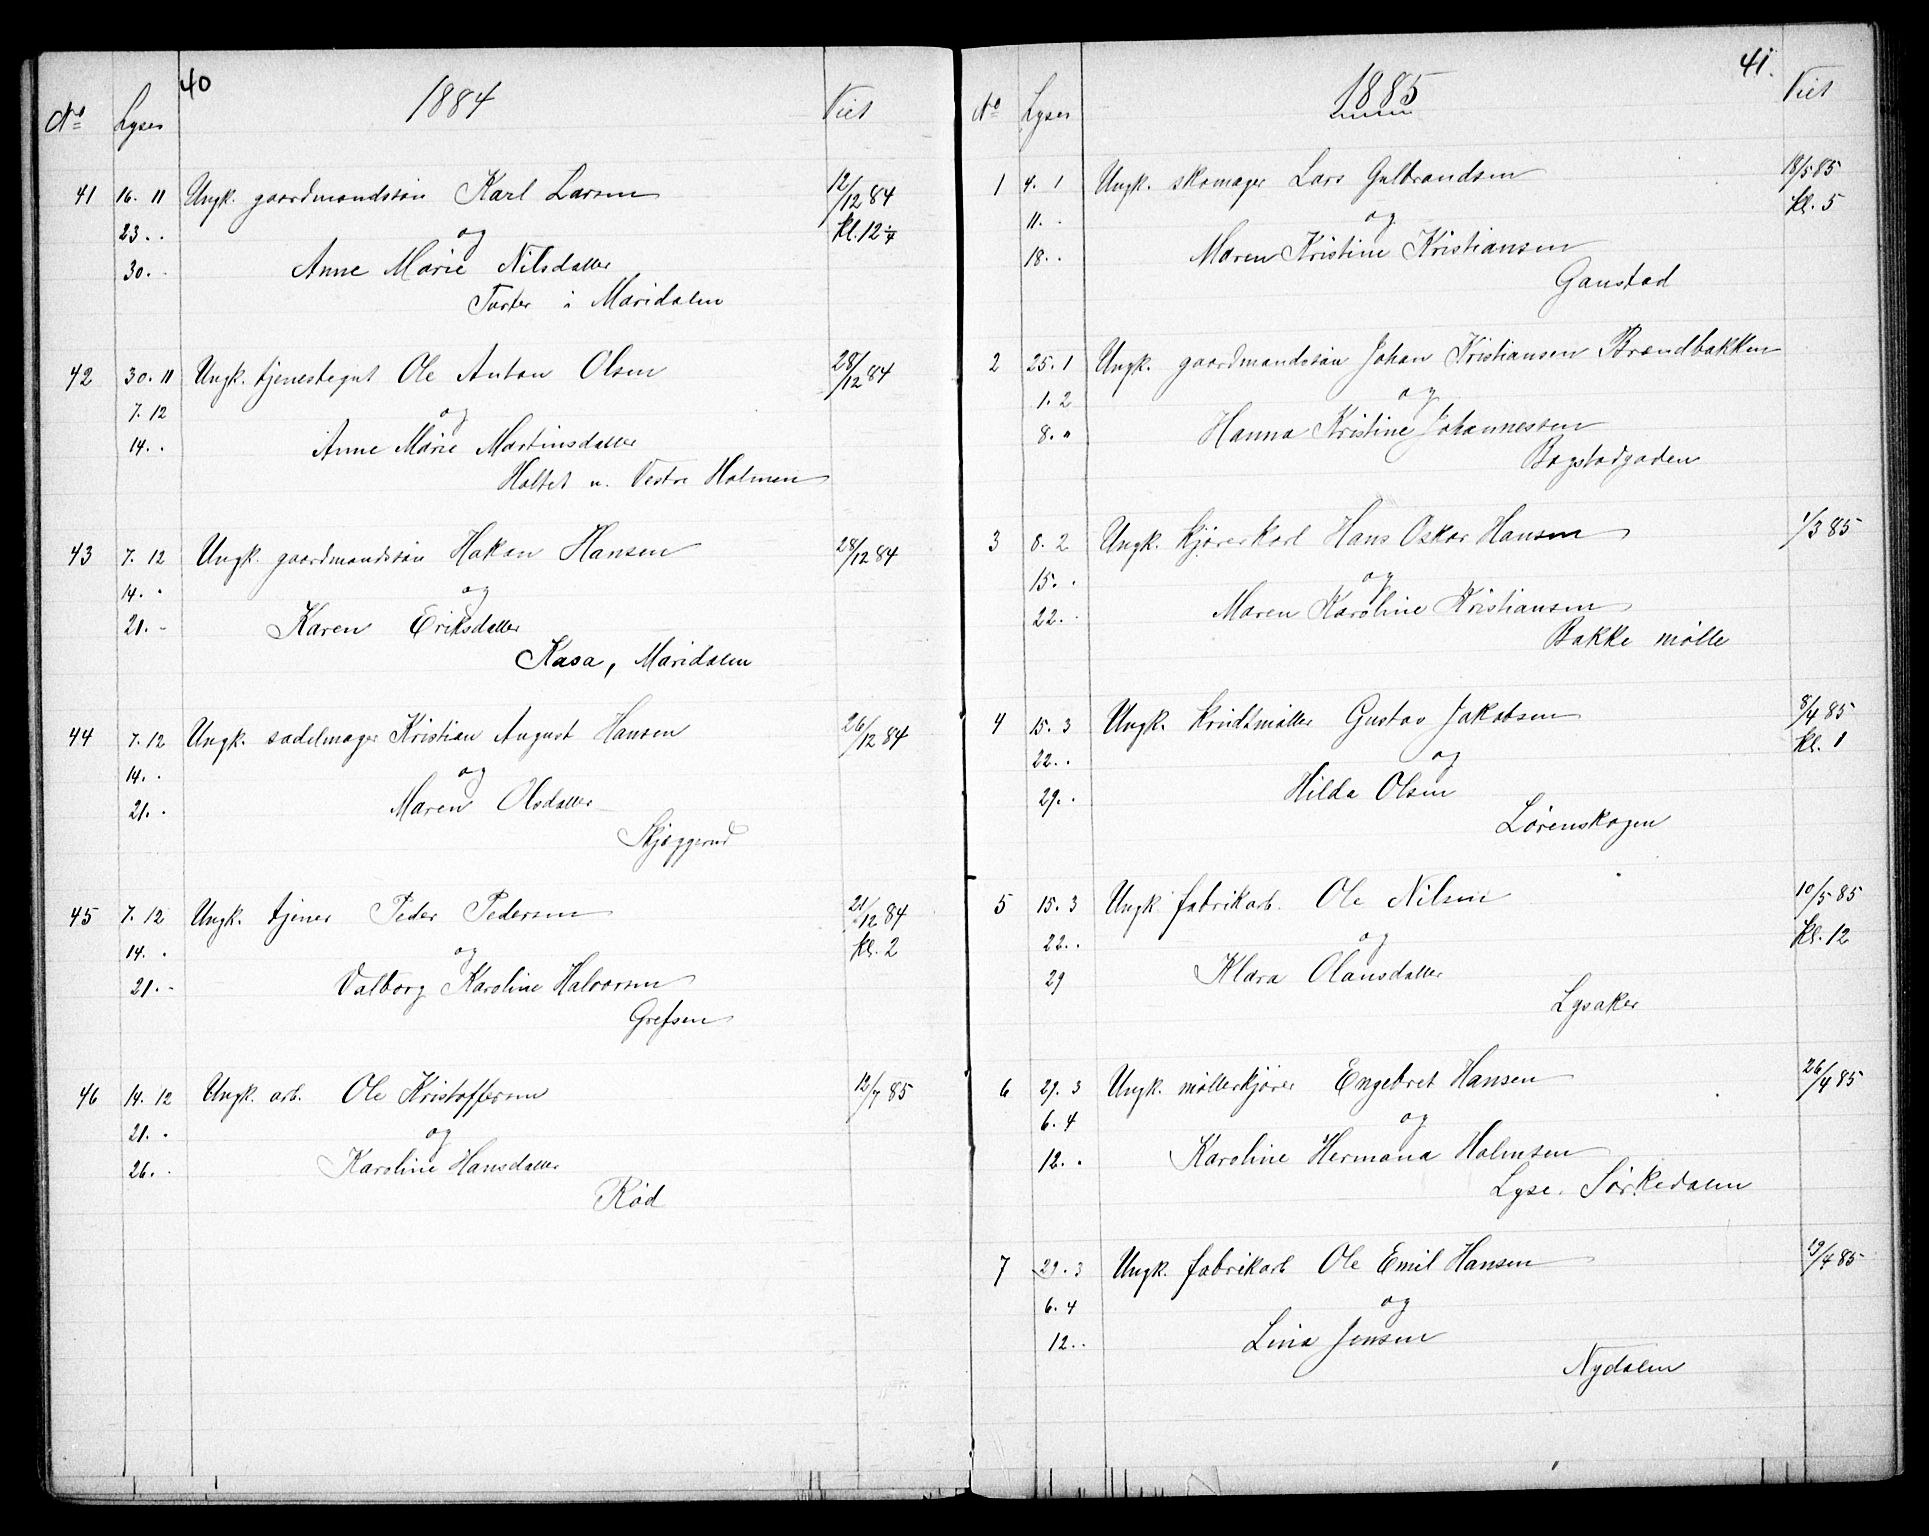 40
1884
No Lyser Viet
41 16. 11 Ungk. gaardmandssøn Karl Larsen 12/12 84
23. . og kl. 12 1/4
30. . Anne Marie Nilsdatter
Turter i Maridalen
42 30. 11 Ungk. tjenestegut Ole Anton Olsen 28/12 84
7. 12 og
14. . Anne Marie Martinsdatter
Holtet u. Vestre Holmen
43 7. 12 Ungk. gaardmandssøn Hakon Hansen 28/12 84
14. . og
21. . Karen Eriksdatter
Kasa, Maridalen
44 7. 12 Ungk. sadelmager Kristian August Hansen 26/12 84
14. . og
21. . Maren Olsdatter
Skjøggerud
45 7. 12 Ungk. tjener Peder Pedersen 21/12 84
14. . og kl. 2
21. . Valborg Karoline Halvorsen
Grefsen
46 14. 12 Ungk. arb. Ole Kristoffersen 12/7 85
21. . og
26. . Karoline Hansdatter
Rød
41.
1885
No Lyser Viet
1 4. 1 Ungk. skomager Lars Gulbrandsen 18/5 85
11. . og kl. 5
18. . Maren Kristine Kristiansen
Ganstad
2 25. 1 Ungk. gaardmandssøn Johan Kristiansen Brændbakken
1. 2 og
8. " Hanna Kristine Johannessen
Bogstadgaden
3 8. 2 Ungk. kjørerkarl Hans Oskar Hansen 1/3 85
15. . og
22. . Maren Karoline Kristiansen
Bakke mølle
4 15. 3 Ungk. krudtmøller Gustav Jakobsen 8/4 85
22. . og kl. 1
29. . Hilda Olsen
Lørenskogen
5 15. 3 Ungk fabrikarb. Ole Nilsen 10/5 85
22. . og kl. 12
29 Klara Olausdatter
Lysaker
6 29. 3 Ungk. møllerkjører Engebret Hansen 26/4 85
6. 4 og
12. . Karoline Hermana Holmsen
Lyse. Sørkedalen
7 29. 3 Ungk. fabrikarb Ole Emil Hansen 19/4 85
6. 4 og
12. . Lina Jensen
Nydalen